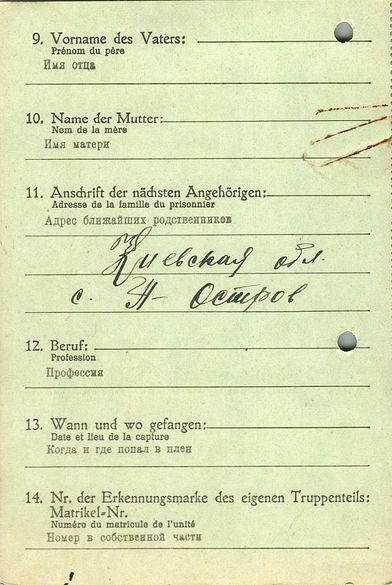 9. Vorname des Vaters:
Prénom du père
Имя отца
10. Name der Mutter:
Nom de la mère
Имя матери
11. Anschrift der nächsten Angehörigen:
Adresse de la famille du prisonnier
Адрес ближайших родственников
Киевская обл.
с. Н-Остров
12. Beruf:
Profession
Профессия
13. Wann und wo gefangen:
Date et lieu de la capture
Когда и где попал в плен
14. Nr. der Erkennungsmarke des eigenen Truppenteils:
Matrikel-Nr.
Numéro du matricule de l'unité
Номер в собственной части